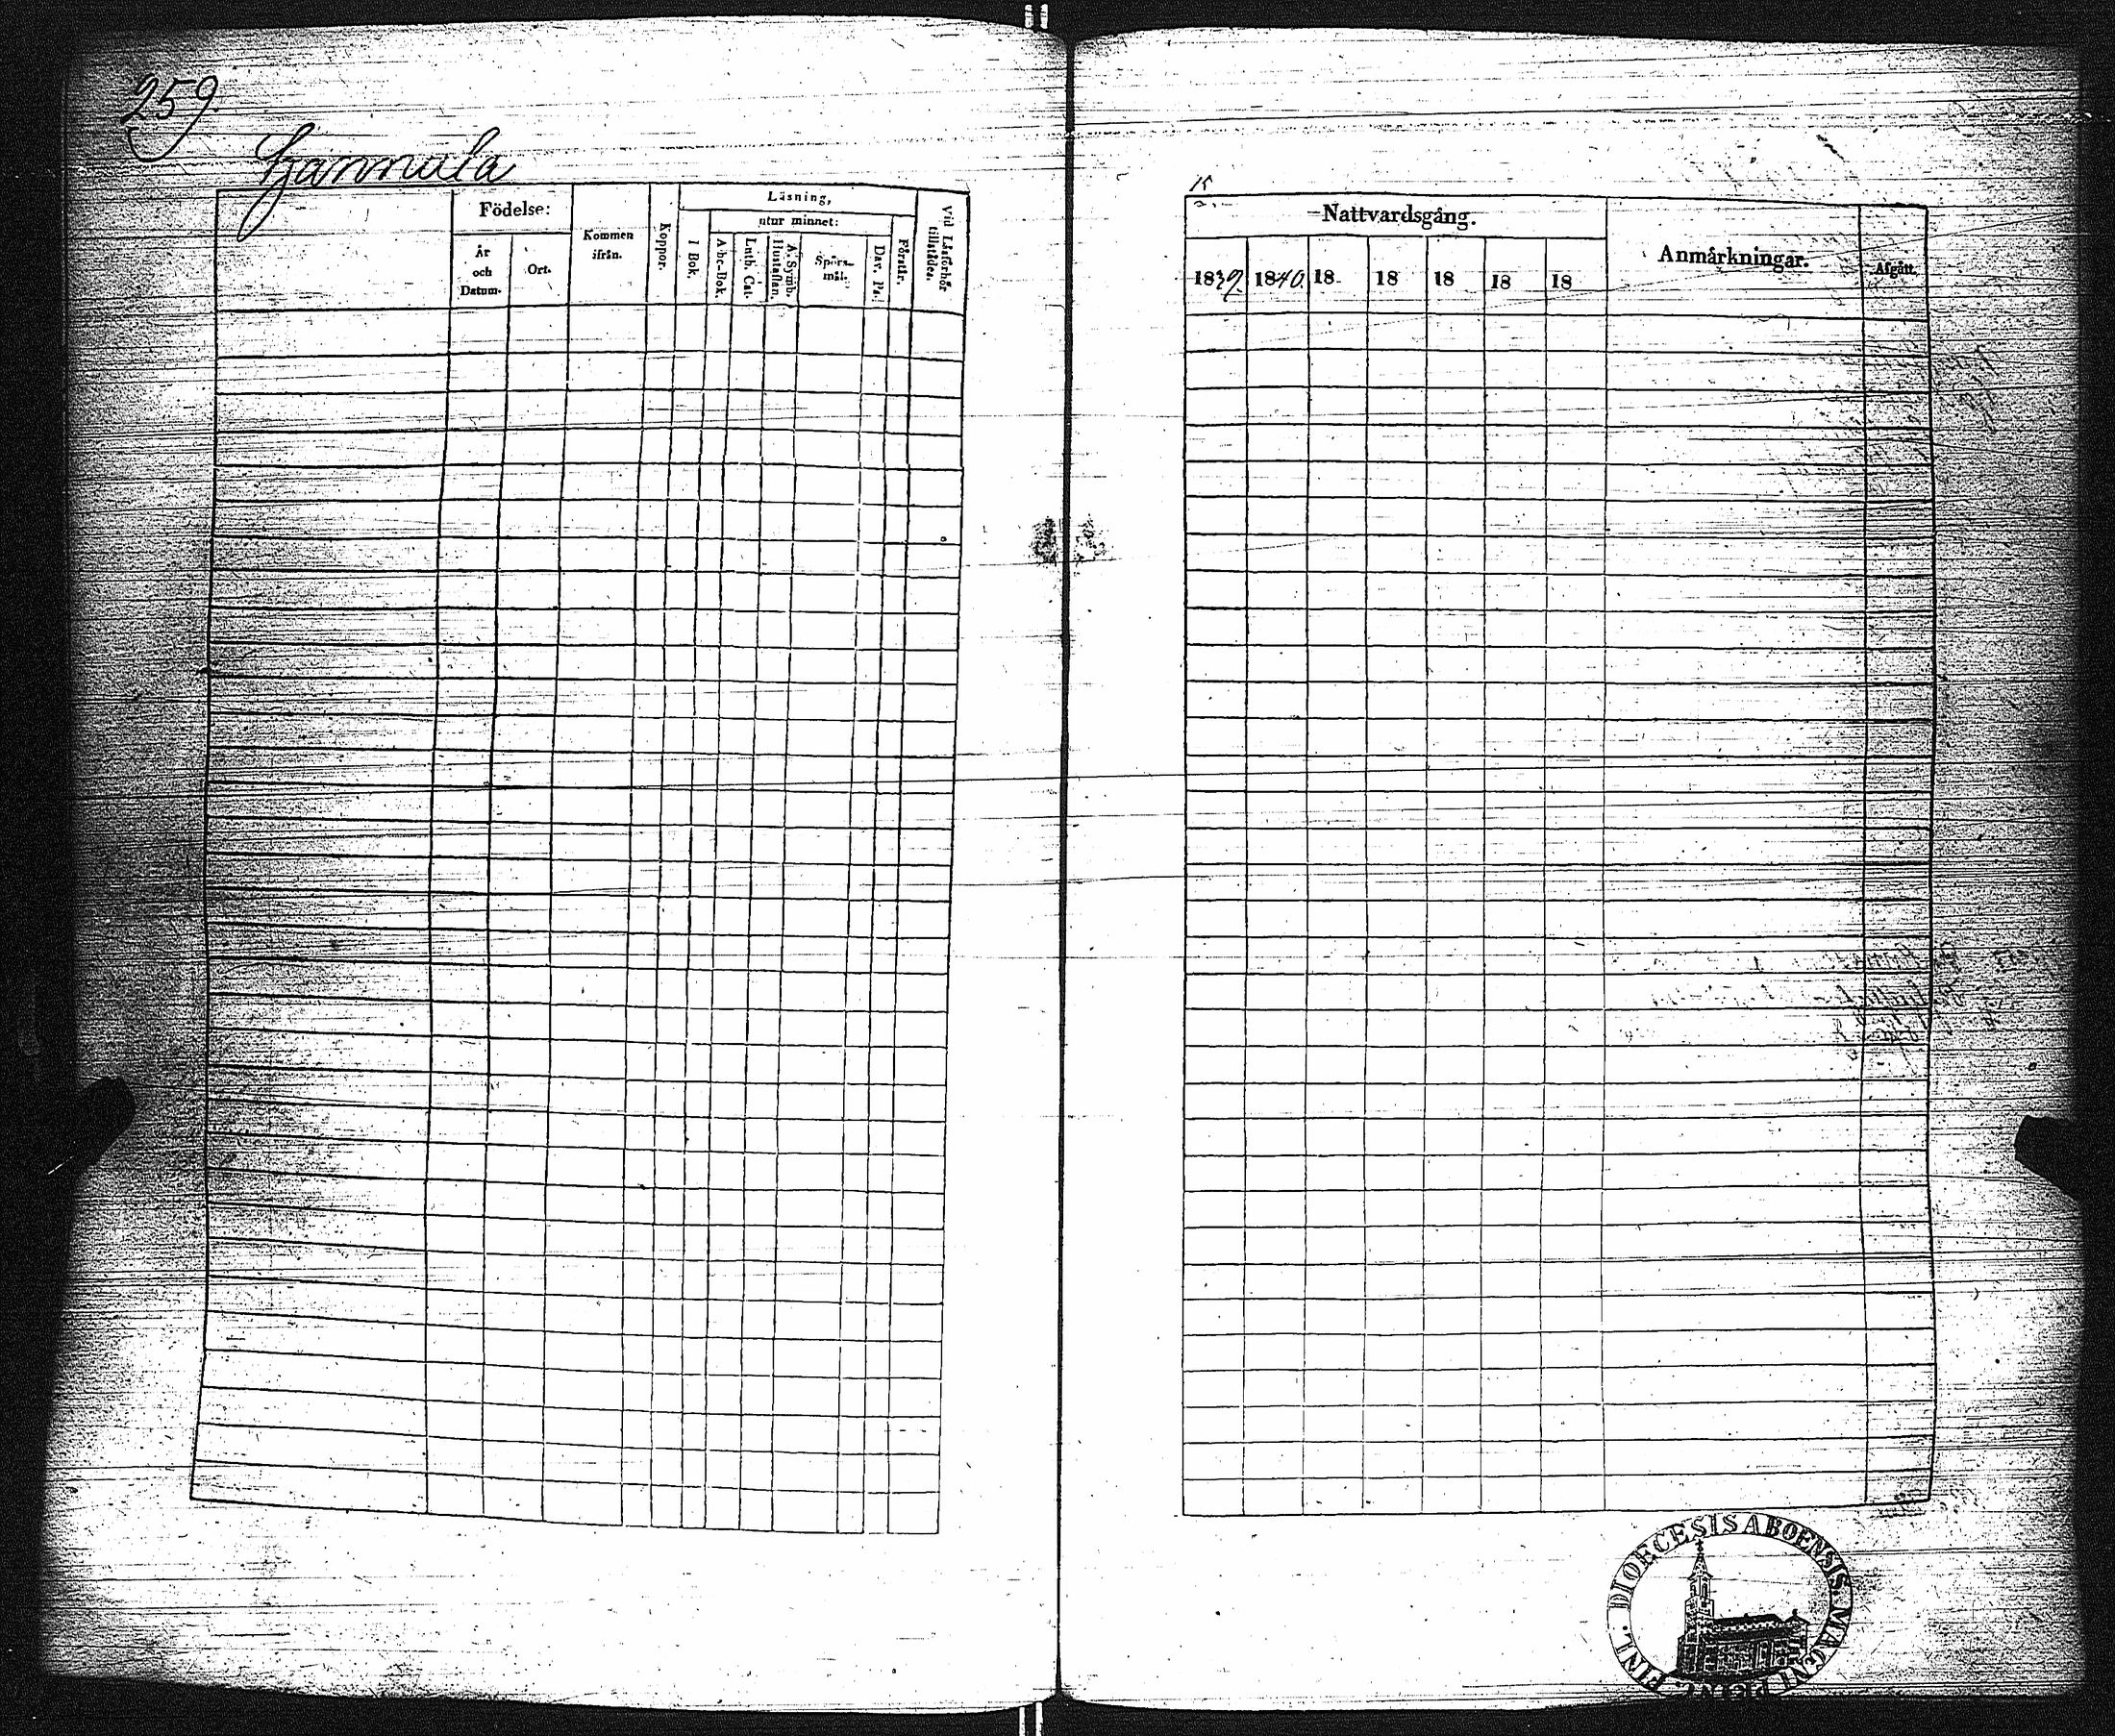 259.
Hannula
Födelse:
År
och
Datum.
Ort.
Kommen
ifrån.
Koppor.
Läsning,
utur minnet:
I Bok.
Abc-Bok.
Luth. Cat.
A. Symb.
Hustaflan.
Spörs-
mål.
Dav. Ps.
Förstår.
Vid Läsförhör
tillstädes.
Nattvardsgång.
1839. 1840. 18 18 18 18 18
Anmärkningar.
Afgått.
FINL. DIOECESIS ABOENSIS MAGNI